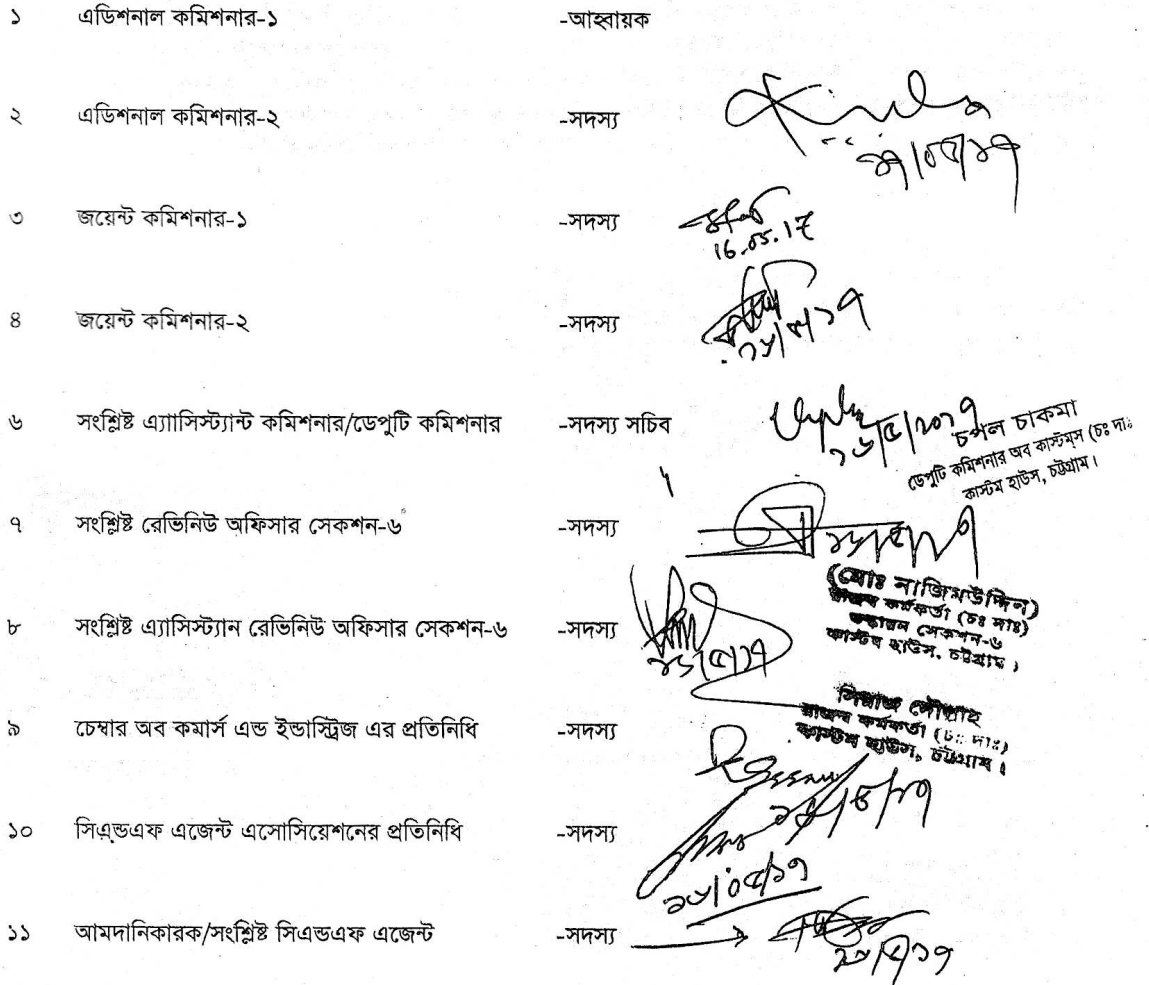 ১ এডিশনাল কমিশনার-১ -আহবায়ক
২ এডিশনাল কমিশনার-২ -সদস্য
৩ জয়েন্ট কমিশনার-১ -সদস্য
16.05.17
৪ জয়েন্ট কমিশনার-২ -সদস্য
৬ সংশ্লিষ্ট এ্যাাসিস্ট্যান্ট কমিশনার/ডেপুটি কমিশনার -সদস্য সচিব
১৬/৫/২০১৭
চপল চাকমা
ডেপুটি কমিশনার অব কাস্টমস (চঃ দাঃ
কাস্টম হাউস, চট্টগ্রাম।
৭ সংশ্লিষ্ট রেভিনিউ অফিসার সেকশন-৬ -সদস্য
(মোঃ নাজিমউদ্দিন)
রাজস্ব কর্মকর্তা (চঃ দাঃ)
সেকশন-৬
কাস্টম হাউস, চট্টগ্রাম।
৮ সংশ্লিষ্ট এ্যাসিস্ট্যান রেভিনিউ অফিসার সেকশন-৬ -সদস্য
১৬/৫/১৭
রাজস্ব কর্মকর্তা (চঃ দাঃ)
কাস্টম হাউস, চট্টগ্রাম।
৯ চেম্বার অব কমার্স এন্ড ইন্ডাস্ট্রিজ এর প্রতিনিধি -সদস্য
১০ সিএন্ডএফ এজেন্ট এসোসিয়েশনের প্রতিনিধি -সদস্য
১৬/০৫/১৭
১১ আমদানিকারক/সংশ্লিষ্ট সিএন্ডএফ এজেন্ট -সদস্য